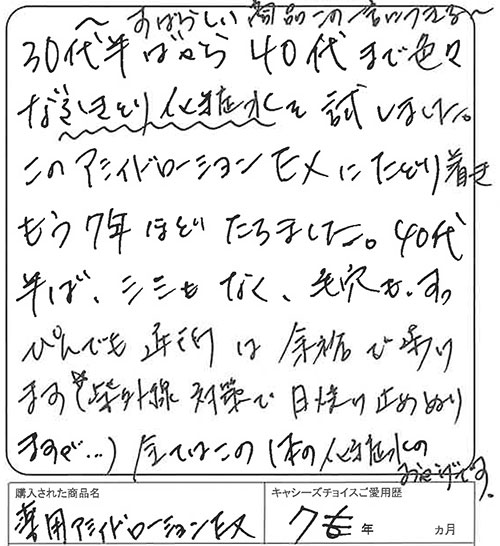 〜すばらしい商品この一言につきる〜
30代半ばから40代まで色々
なふきとり化粧水を試しました。
このアシィドローションEXにたどり着き
もう7年ほどたちました。40代
半ば、シミもなく、毛穴も、すっ
ぴんでも近所は余裕で歩け
ます(紫外線対策で日焼け止めぬり
ますが…)全てはこの1本の化粧水の
おかげです。
購入された商品名
薬用アシィドローションEX
キャシーズチョイスご愛用歴
7年 ヵ月